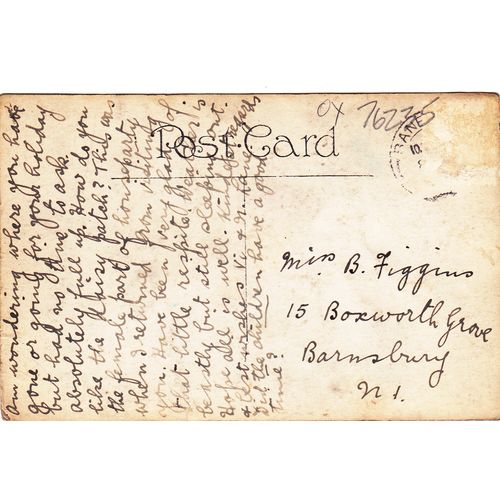 Post Card
76226
RAN
Am wondering where you have
gone or going for your holiday
but had no time to ask.
absolutely full up now do you
like the Daisy patch? This was
the female part of house party
when I returned from visiting
you. Have been very glad of
that little respite! Weather is
beastly but still sleeping out.
Hope all is well. Kindest regards
& best wishes
the children have a good
time?
Miss B. Figgins
15 Boxworth Grove
Barnsbury
N1.